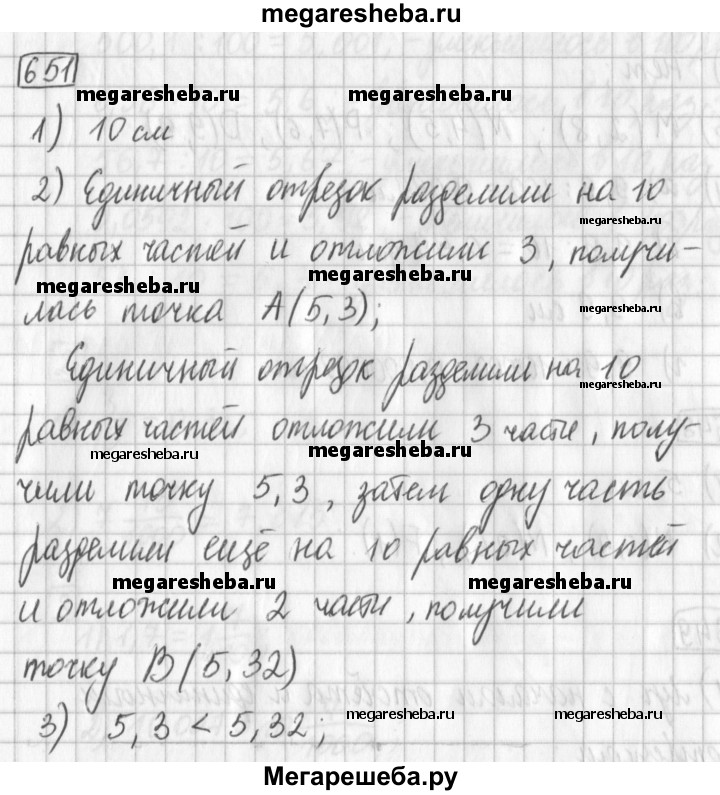 megaresheba.ru
651
megaresheba.ru megaresheba.ru
1) 10 см
2) Единичный отрезок разделили на 10
megaresheba.ru
равных частей и отложили 3, получи-
megaresheba.ru megaresheba.ru
лась точка A(5,3);
megaresheba.ru
Единичный отрезок разделили на 10
megaresheba.ru
равных частей отложили 3 части, полу-
megaresheba.ru megaresheba.ru
чили точку 5,3, затем одну часть
разделили ещё на 10 равных частей
megaresheba.ru megaresheba.ru
и отложили 2 части, получили
точку B(5,32)
3) 5,3 < 5,32;
megaresheba.ru megaresheba.ru
Мегарешеба.ру